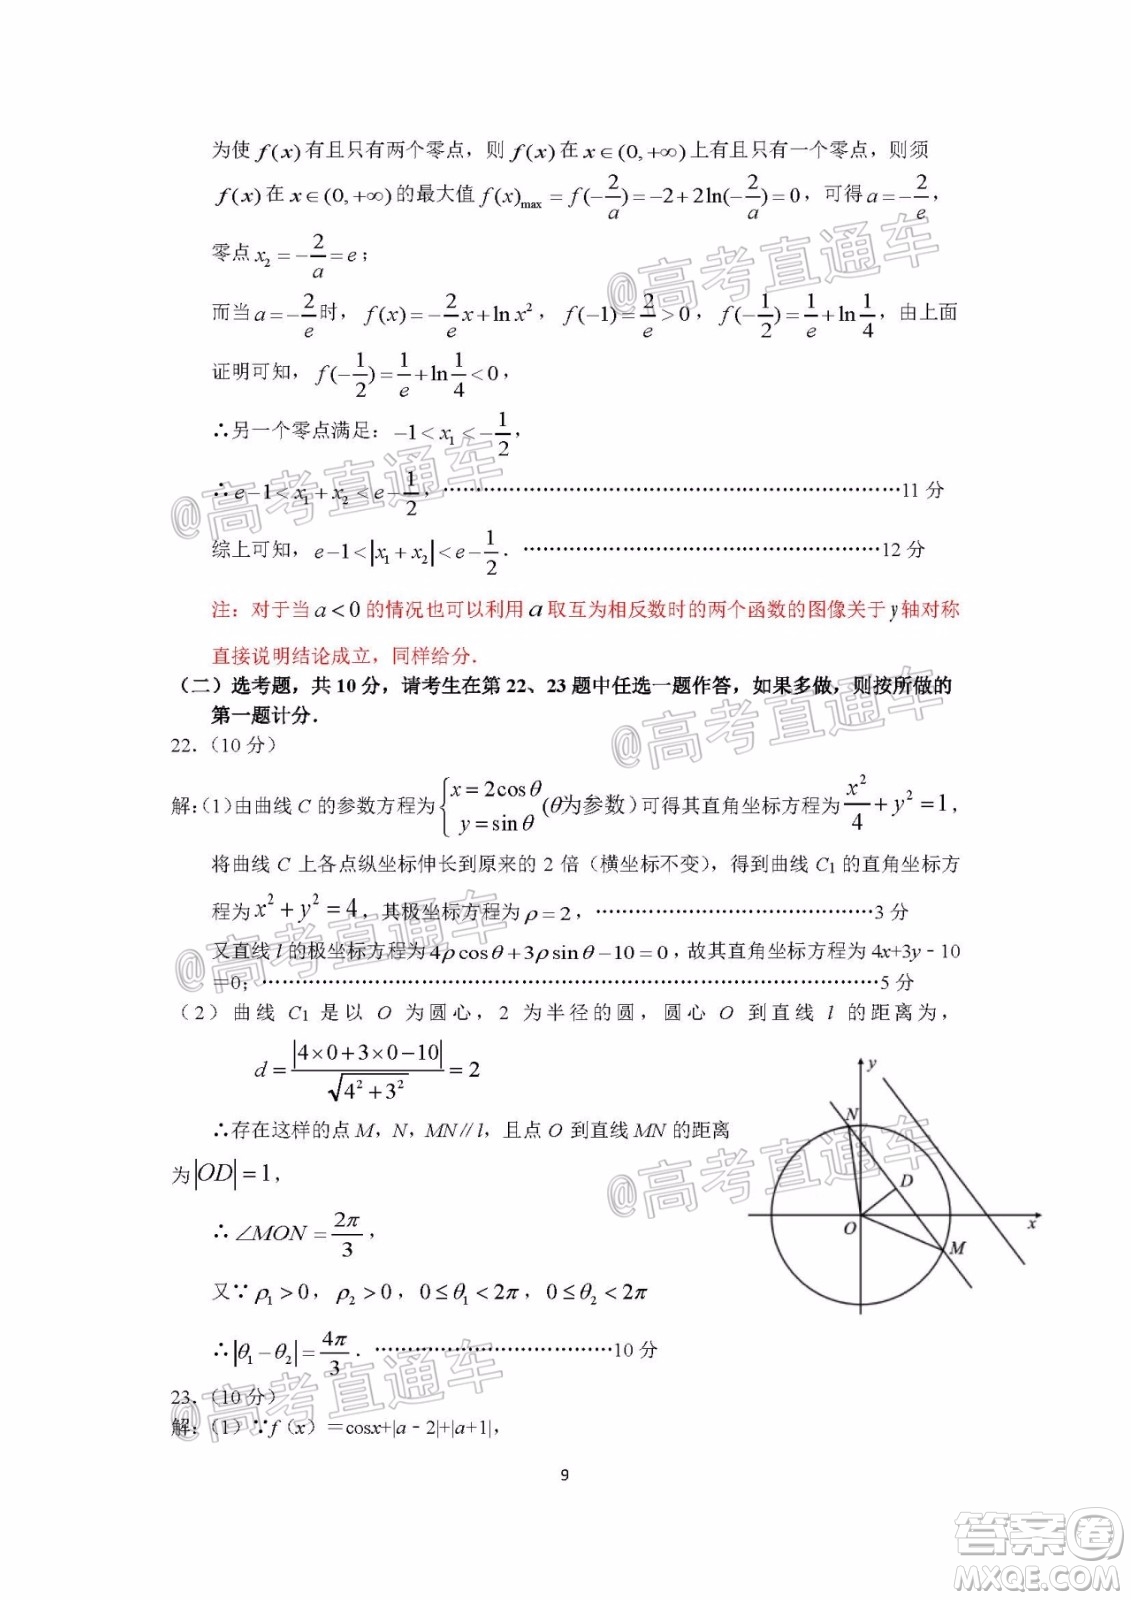 为使 f(x) 有且只有两个零点，则 f(x) 在 x∈(0, +∞) 上有且只有一个零点，则须
f(x) 在 x∈(0, +∞) 的最大值 f(x)max = f(-2/a) = -2+2ln(-2/a) = 0，可得 a = -2/e，
零点 x₂ = -2/a = e；
而当 a = -2/e 时，f(x) = -2/e x+ln x²，f(-1) = 2/e > 0，f(-1/2) = 1/e + ln 1/4，由上面
证明可知，f(-1/2) = 1/e + ln 1/4 < 0，
∴另一个零点满足：-1 < x₁ < -1/2，
∴ e-1 < x₁ + x₂ < e-1/2，……………………………………………………………11 分
综上可知，e-1 < |x₁ + x₂| < e-1/2．………………………………………………12 分
注：对于当 a < 0 的情况也可以利用 a 取互为相反数时的两个函数的图像关于 y 轴对称
直接说明结论成立，同样给分．
（二）选考题，共 10 分，请考生在第 22、23 题中任选一题作答，如果多做，则按所做的
第一题计分．
22．（10 分）
解：（1）由曲线 C 的参数方程为 {x = 2cosθ y = sinθ (θ为参数) 可得其直角坐标方程为 x²/4 + y² = 1，
将曲线 C 上各点纵坐标伸长到原来的 2 倍（横坐标不变），得到曲线 C₁ 的直角坐标方
程为 x² + y² = 4，其极坐标方程为 ρ = 2，……………………………………3 分
又直线 l 的极坐标方程为 4ρcosθ+3ρsinθ-10 = 0，故其直角坐标方程为 4x+3y﹣10
＝0；……………………………………………………………………………………5 分
（2）曲线 C₁ 是以 O 为圆心，2 为半径的圆，圆心 O 到直线 l 的距离为，
d = |4×0+3×0-10|/√(4²+3²) = 2
∴存在这样的点 M，N，MN∥l，且点 O 到直线 MN 的距离
为 |OD| = 1，
∴ ∠MON = 2π/3，
又∵ ρ₁ > 0，ρ₂ > 0，0 ≤ θ₁ < 2π，0 ≤ θ₂ < 2π
∴ |θ₁ - θ₂| = 4π/3．………………………………10 分
y
N
D
O
x
M
23．（10 分）
解：（1）∵f（x）＝cosx+|a﹣2|+|a+1|，
9
@高考直通车
@高考直通车
@高考直通车
@高考直通车
@高考直通车
@高考直通车
答案圈
MXQE.COM